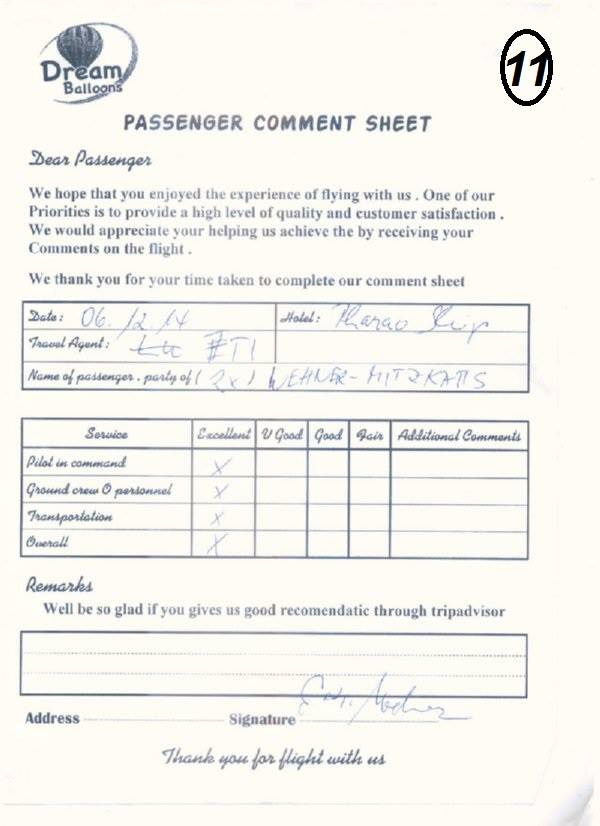 Dream
Balloons
11
PASSENGER COMMENT SHEET
Dear Passenger
We hope that you enjoyed the experience of flying with us . One of our
Priorities is to provide a high level of quality and customer satisfaction .
We would appreciate your helping us achieve the by receiving your
Comments on the flight .
We thank you for your time taken to complete our comment sheet
Date : 06. 12.14 Hotel :
Travel Agent :
Name of passenger . party of ( 2x ) WEHNER-MITZKATIS
Service Excellent V Good Good Fair Additional Comments
Pilot in command X
Ground crew O personnel X
Transportation X
Overall X
Remarks
Well be so glad if you gives us good recomendatic through tripadvisor
Address Signature
Thank you for flight with us